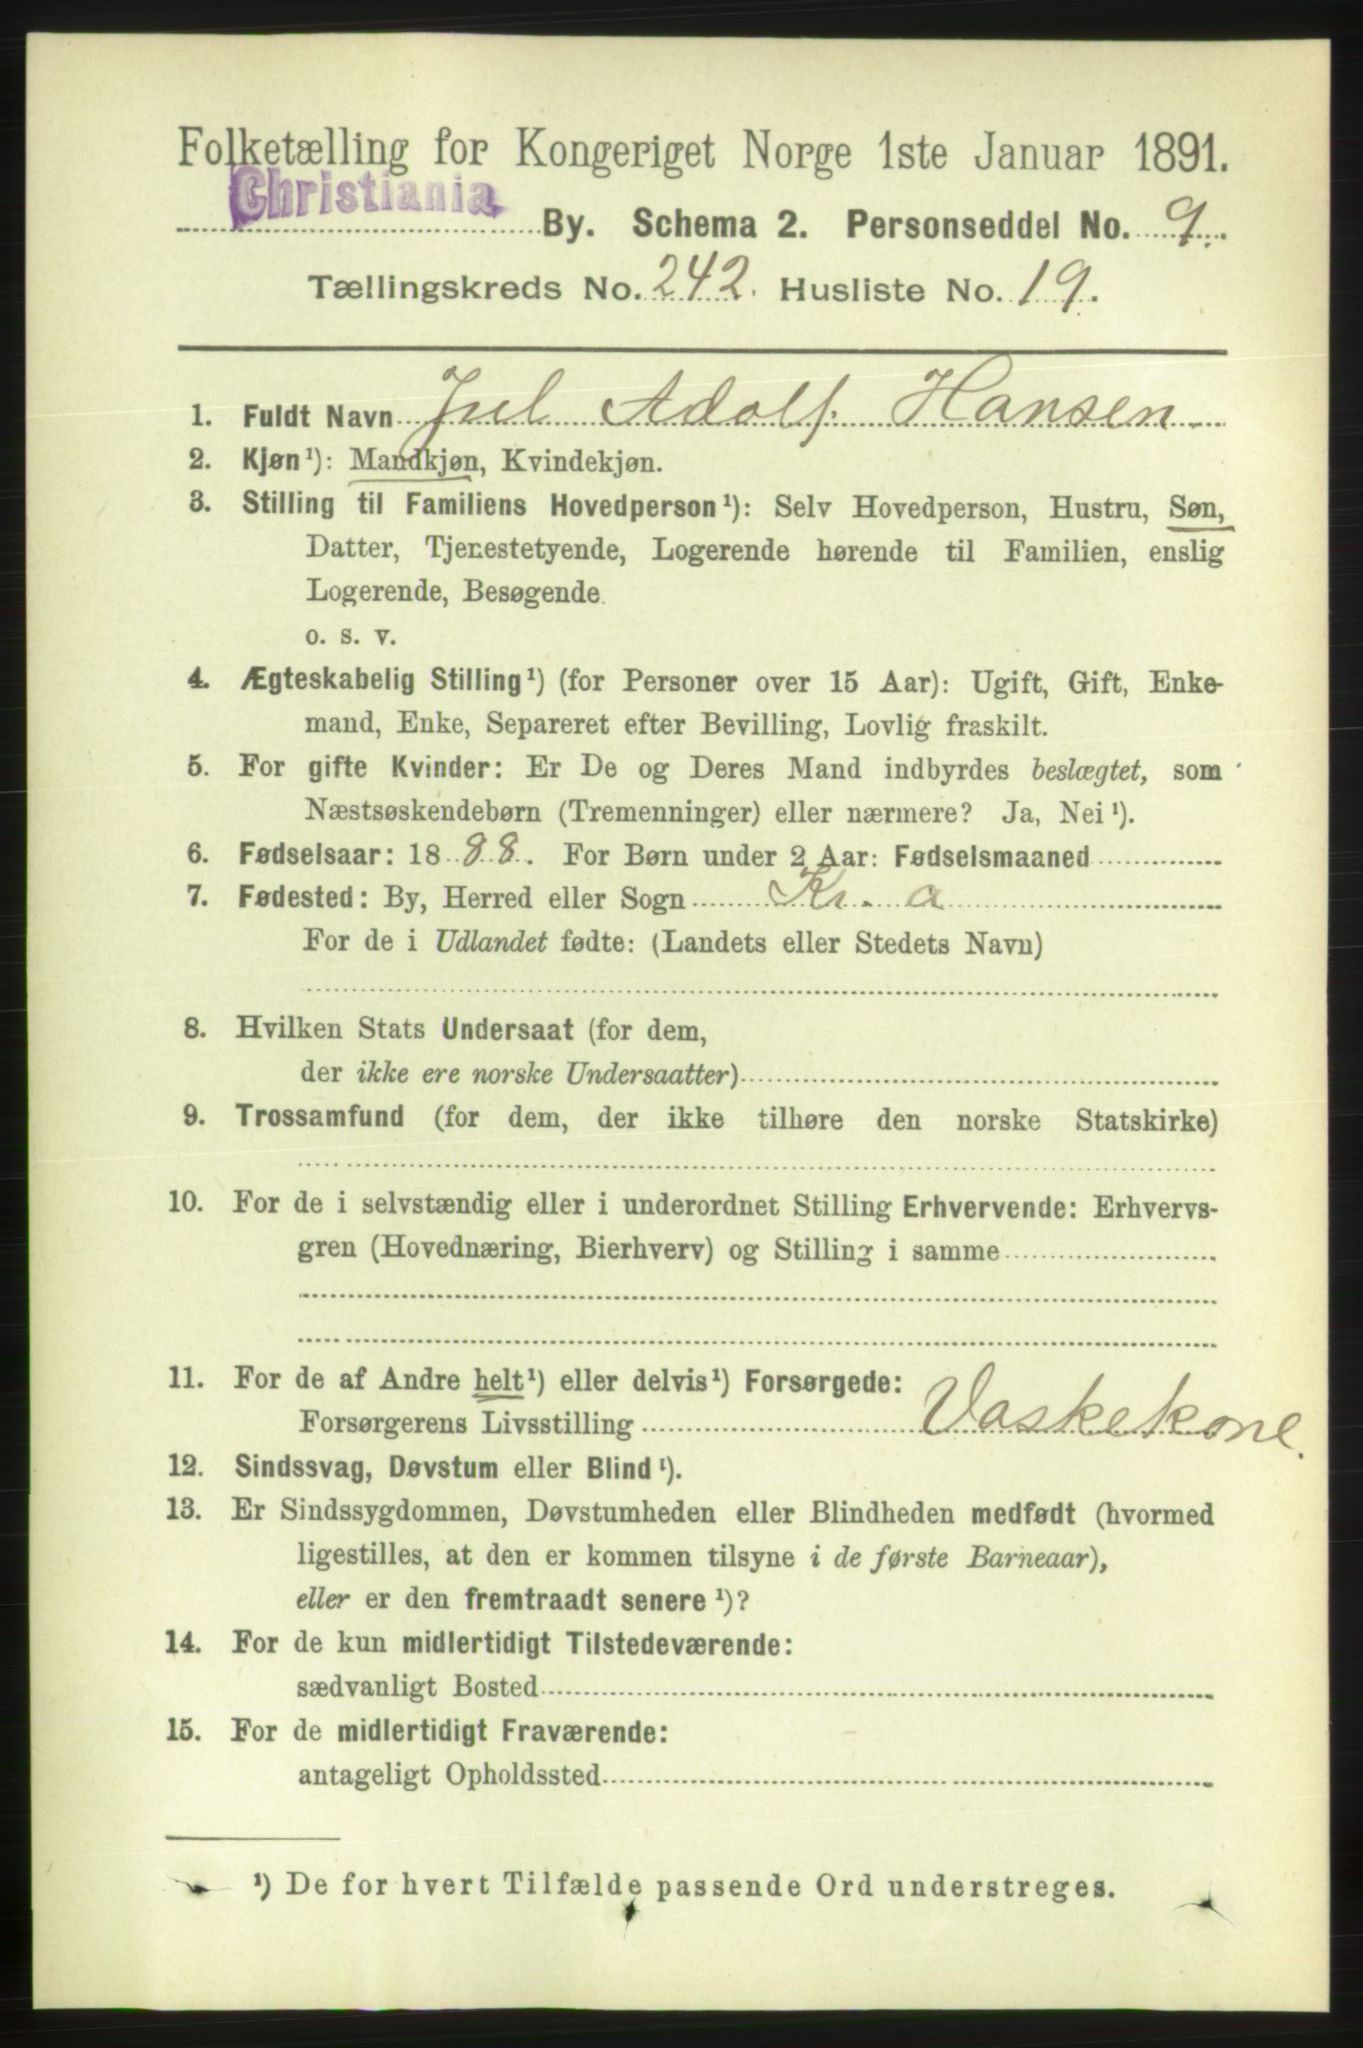 Folketælling for Kongeriget Norge 1ste Januar 1891.
Christiania By. Schema 2. Personseddel No. 9.
Tællingskreds No. 242. Husliste No. 19.
1. Fuldt Navn Jul Adolf Hansen
2. Kjøn¹): Mandkjøn, Kvindekjøn.
3. Stilling til Familiens Hovedperson¹): Selv Hovedperson, Hustru, Søn,
Datter, Tjenestetyende, Logerende hørende til Familien, enslig
Logerende, Besøgende
o. s. v.
4. Ægteskabelig Stilling¹) (for Personer over 15 Aar): Ugift, Gift, Enke-
mand, Enke, Separeret efter Bevilling, Lovlig fraskilt.
5. For gifte Kvinder: Er De og Deres Mand indbyrdes beslægtet, som
Næstsøskendebørn (Tremenninger) eller nærmere? Ja, Nei¹).
6. Fødselsaar: 1888. For Børn under 2 Aar: Fødselsmaaned
7. Fødested: By, Herred eller Sogn Kr.a
For de i Udlandet fødte: (Landets eller Stedets Navn)
8. Hvilken Stats Undersaat (for dem,
der ikke ere norske Undersaatter)
9. Trossamfund (for dem, der ikke tilhøre den norske Statskirke)
10. For de i selvstændig eller i underordnet Stilling Erhvervende: Erhvervs-
gren (Hovednæring, Bierhverv) og Stilling i samme
11. For de af Andre helt¹) eller delvis¹) Forsørgede:
Forsørgerens Livsstilling Vaskekone.
12. Sindssvag, Døvstum eller Blind¹).
13. Er Sindssygdommen, Døvstumheden eller Blindheden medfødt (hvormed
ligestilles, at den er kommen tilsyne i de første Barneaar),
eller er den fremtraadt senere¹)?
14. For de kun midlertidigt Tilstedeværende:
sædvanligt Bosted
15. For de midlertidigt Fraværende:
antageligt Opholdssted
¹) De for hvert Tilfælde passende Ord understreges.